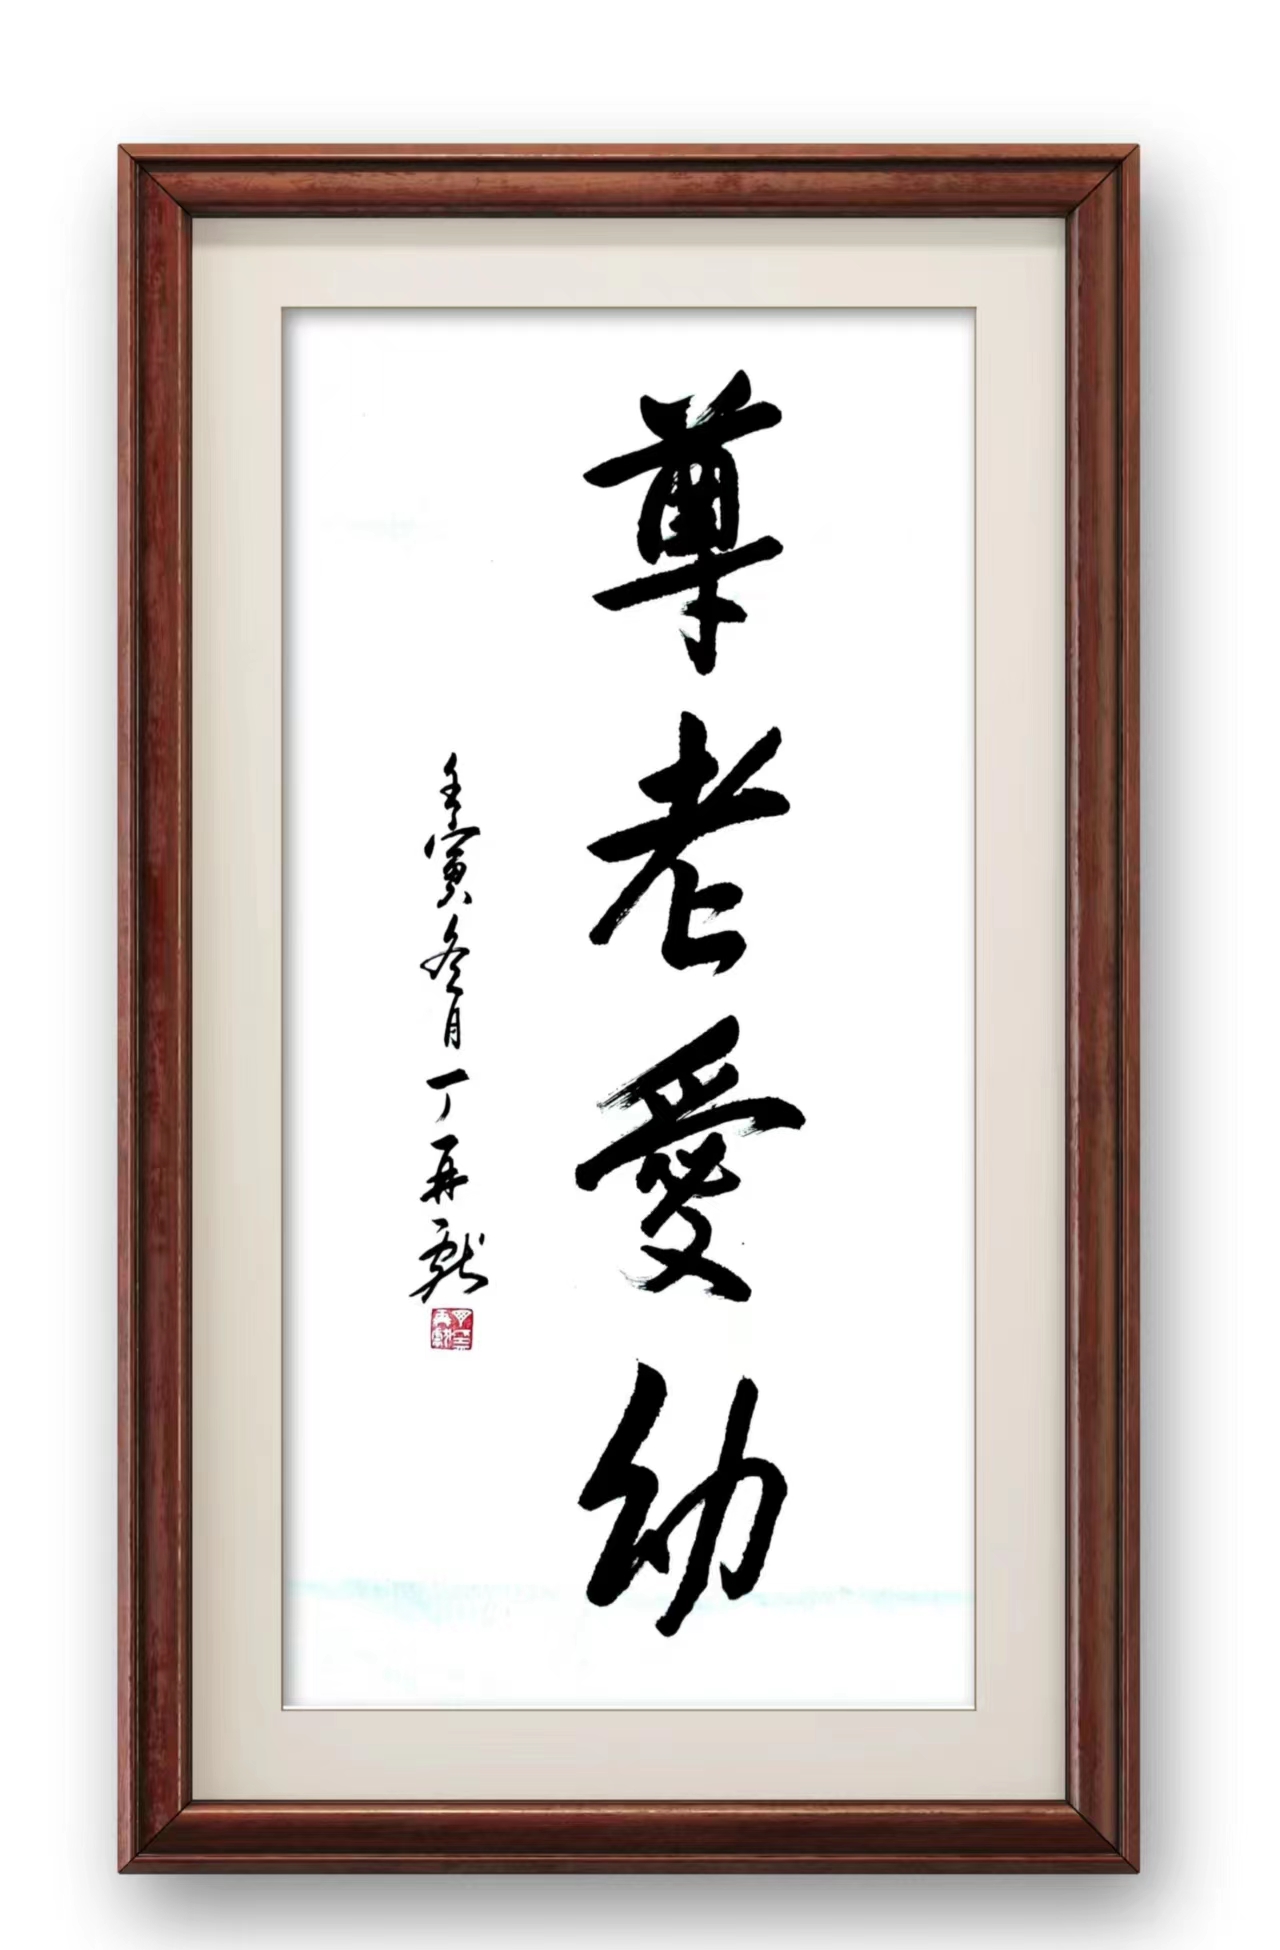 尊老愛幼
壬寅冬月丁再献